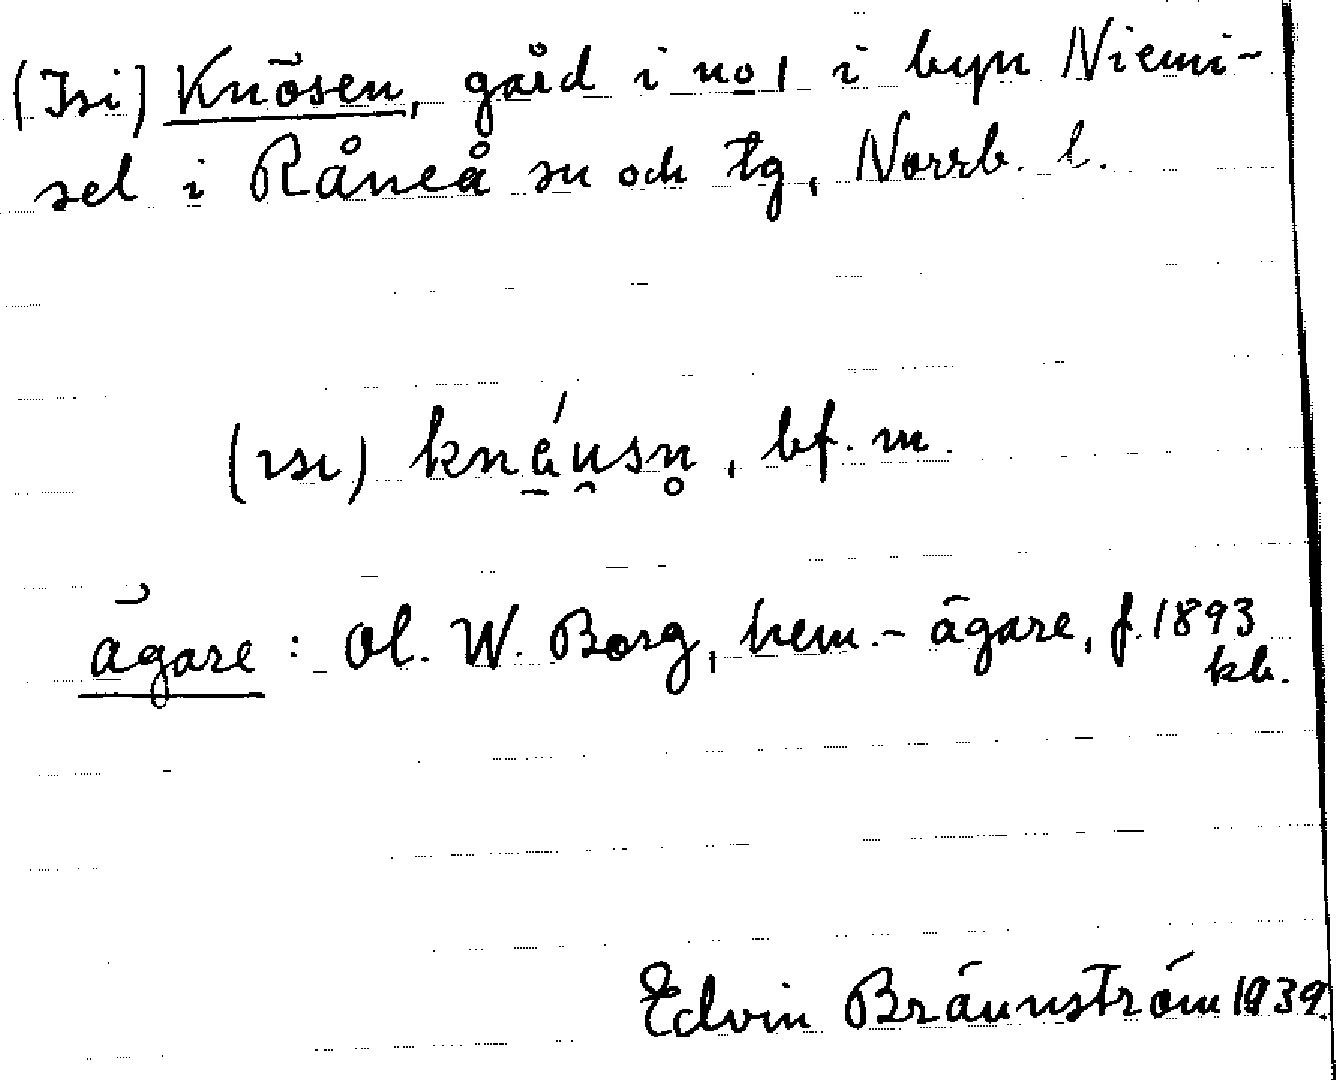 (Isi) Knösen, gård i no 1 i byn Niemi-
sel i Råneå sn och tg, Norrb. l.
(ısı) knẹ́u̯sn̥, bf. m.
ägare: Ol. W. Borg, hem.-ägare, f. 1893
kb.
Edvin Brännström 1939.